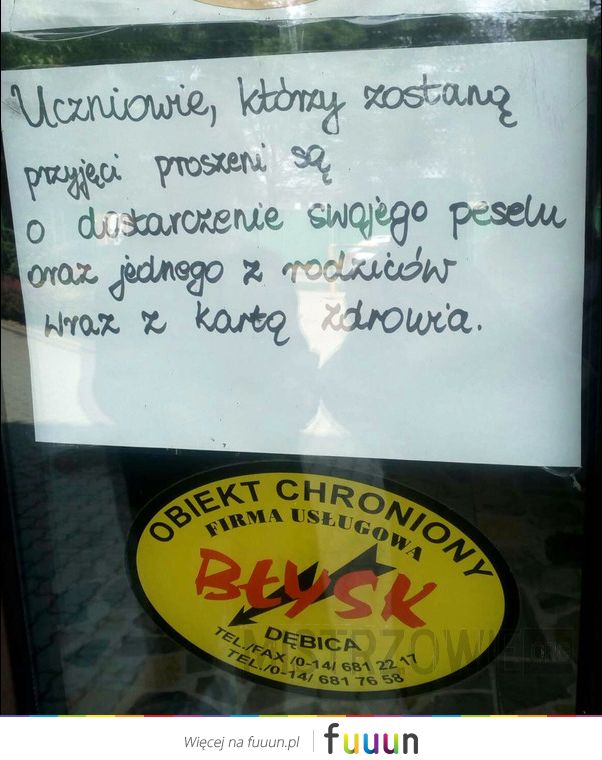 Uczniowie, którzy zostaną
przyjęci proszeni są
o dostarczenie swojego peselu
oraz jednego z rodziców
wraz z kartą zdrowia.
OBIEKT CHRONIONY
FIRMA USŁUGOWA
BŁYSK
DĘBICA
TEL./FAX /0-14/ 681 22 17
TEL./0-14/ 681 76 58
MISTRZOWIE.ORG
Więcej na fuuun.pl | fuuun